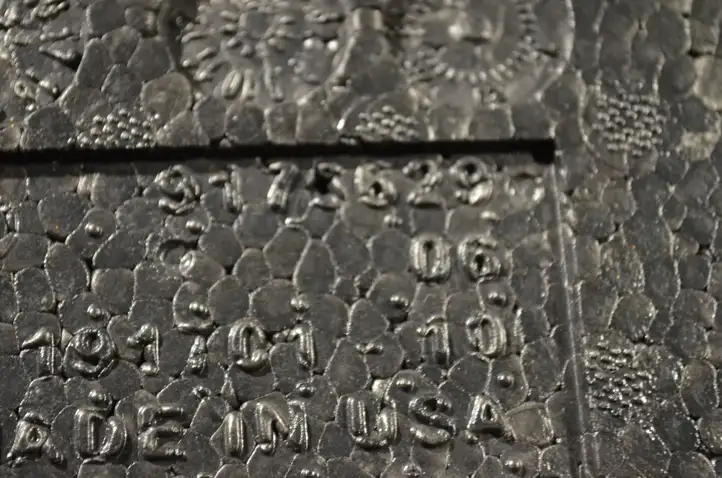 917529
06
197.01-10
ADE IN USA